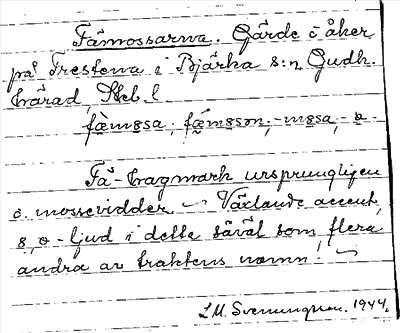 Fämossarna. Gärde i åker
på Frestena i Bjärka s:n Gudh.
härad, Skb. l.
fæ̀mo̯sa, fǽmo̯sǝn, -mo̯sa, -ɵ-
Fä-hagmark ursprungligen
o. mossevidder. ~ Växlande accent,
o̯, ɵ - ljud i detta såväl som flera
andra av traktens namn! ~
I.M. Svenungsson. 1944.